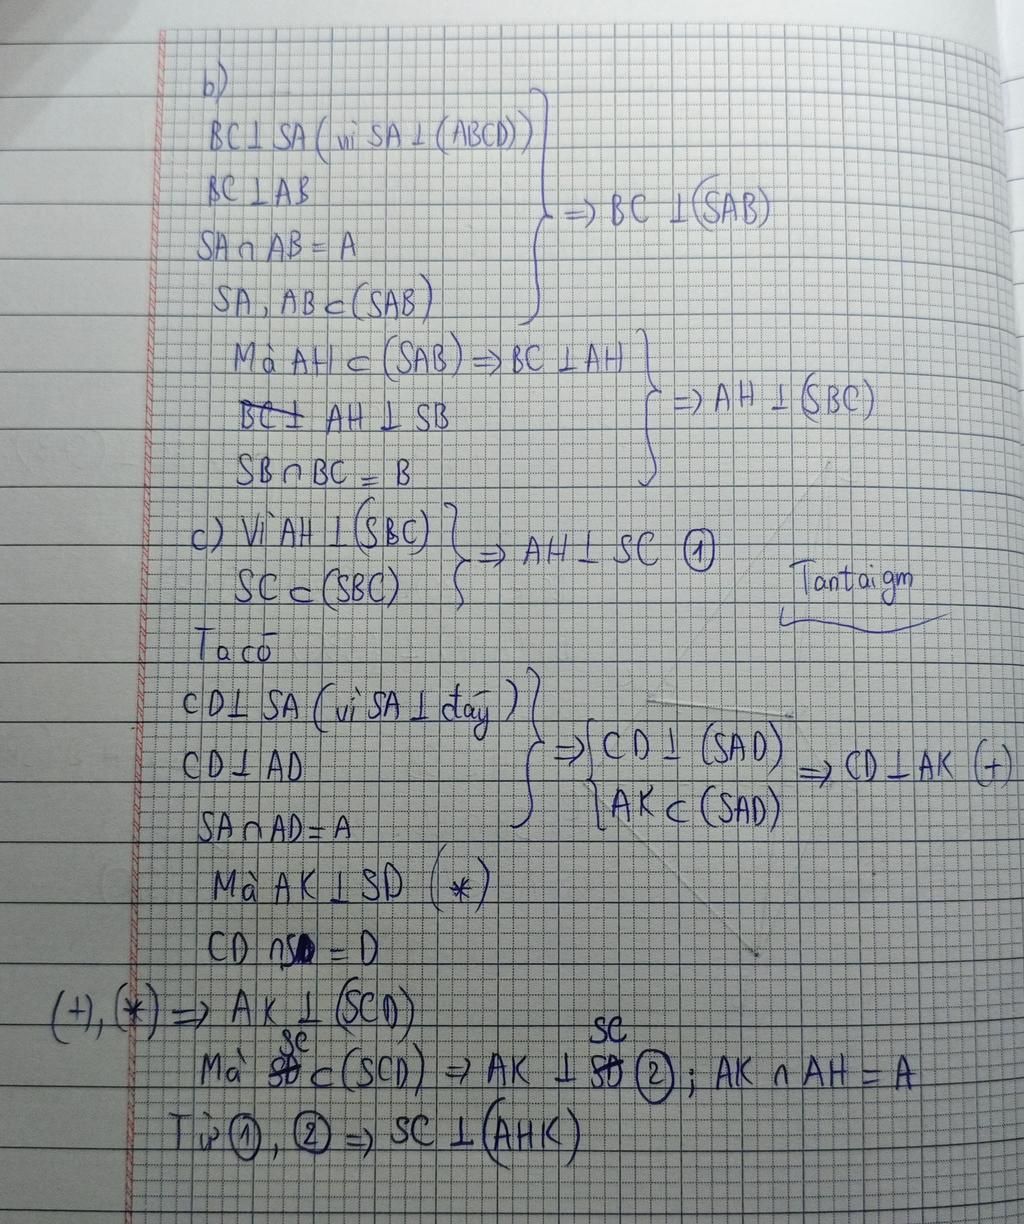 b)
BC ⊥ SA (vì SA ⊥ (ABCD))
BC ⊥ AB
SA ∩ AB = A
SA, AB ⊂ (SAB)
⇒ BC ⊥ (SAB)
Mà AH ⊂ (SAB) ⇒ BC ⊥ AH
BC ⊥ AH ⊥ SB
SB ∩ BC = B
⇒ AH ⊥ (SBC)
c) Vì AH ⊥ (SBC)
SC ⊂ (SBC)
⇒ AH ⊥ SC ①
Tantaigm
Ta có
CD ⊥ SA (vì SA ⊥ đáy)
CD ⊥ AD
SA ∩ AD = A
⇒ { CD ⊥ (SAD)
AK ⊂ (SAD)
⇒ CD ⊥ AK (+)
Mà AK ⊥ SD (*)
CD ∩ SD = D
(+), (*) ⇒ AK ⊥ (SCD)
Mà SC ⊂ (SCD) ⇒ AK ⊥ SC ② ; AK ∩ AH = A
Từ ①, ② ⇒ SC ⊥ (AHK)